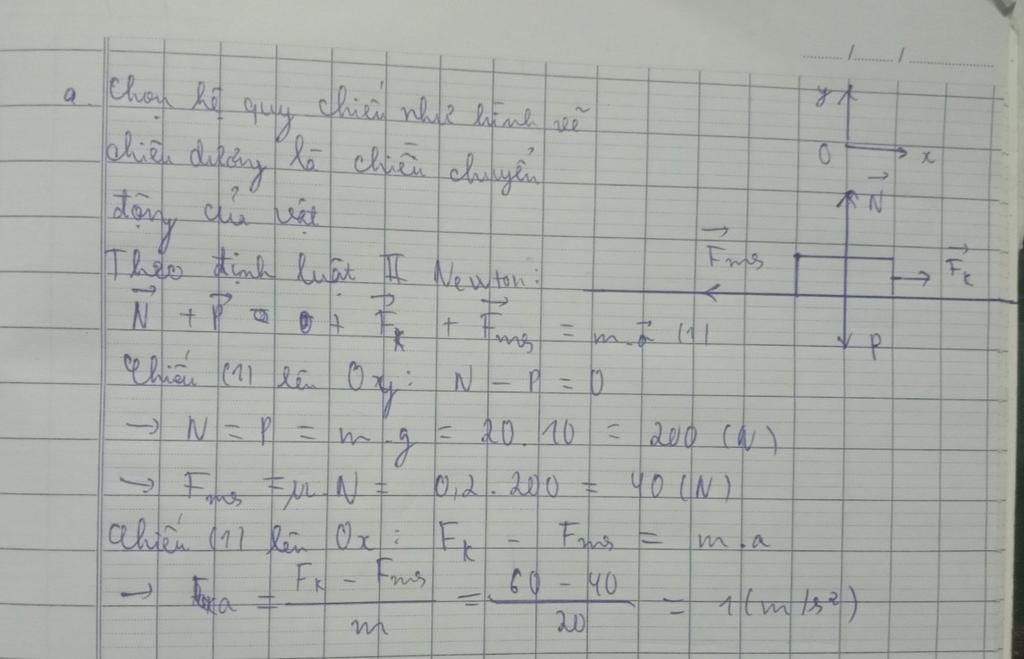 ...../...../.....
a. Chọn hệ quy chiếu như hình vẽ
chiều dương là chiều chuyển
động của vật
Theo định luật II Newton:
N + P + Fk + Fms = m.a (1)
Chiếu (1) lên Oy: N - P = 0
→ N = P = m.g = 20.10 = 200 (N)
→ Fms = μ.N = 0,2.200 = 40 (N)
Chiếu (1) lên Ox: Fk - Fms = m.a
→ a = (Fk - Fms)/m = (60 - 40)/20 = 1 (m/s²)
y
O x
N
Fms Fk
P